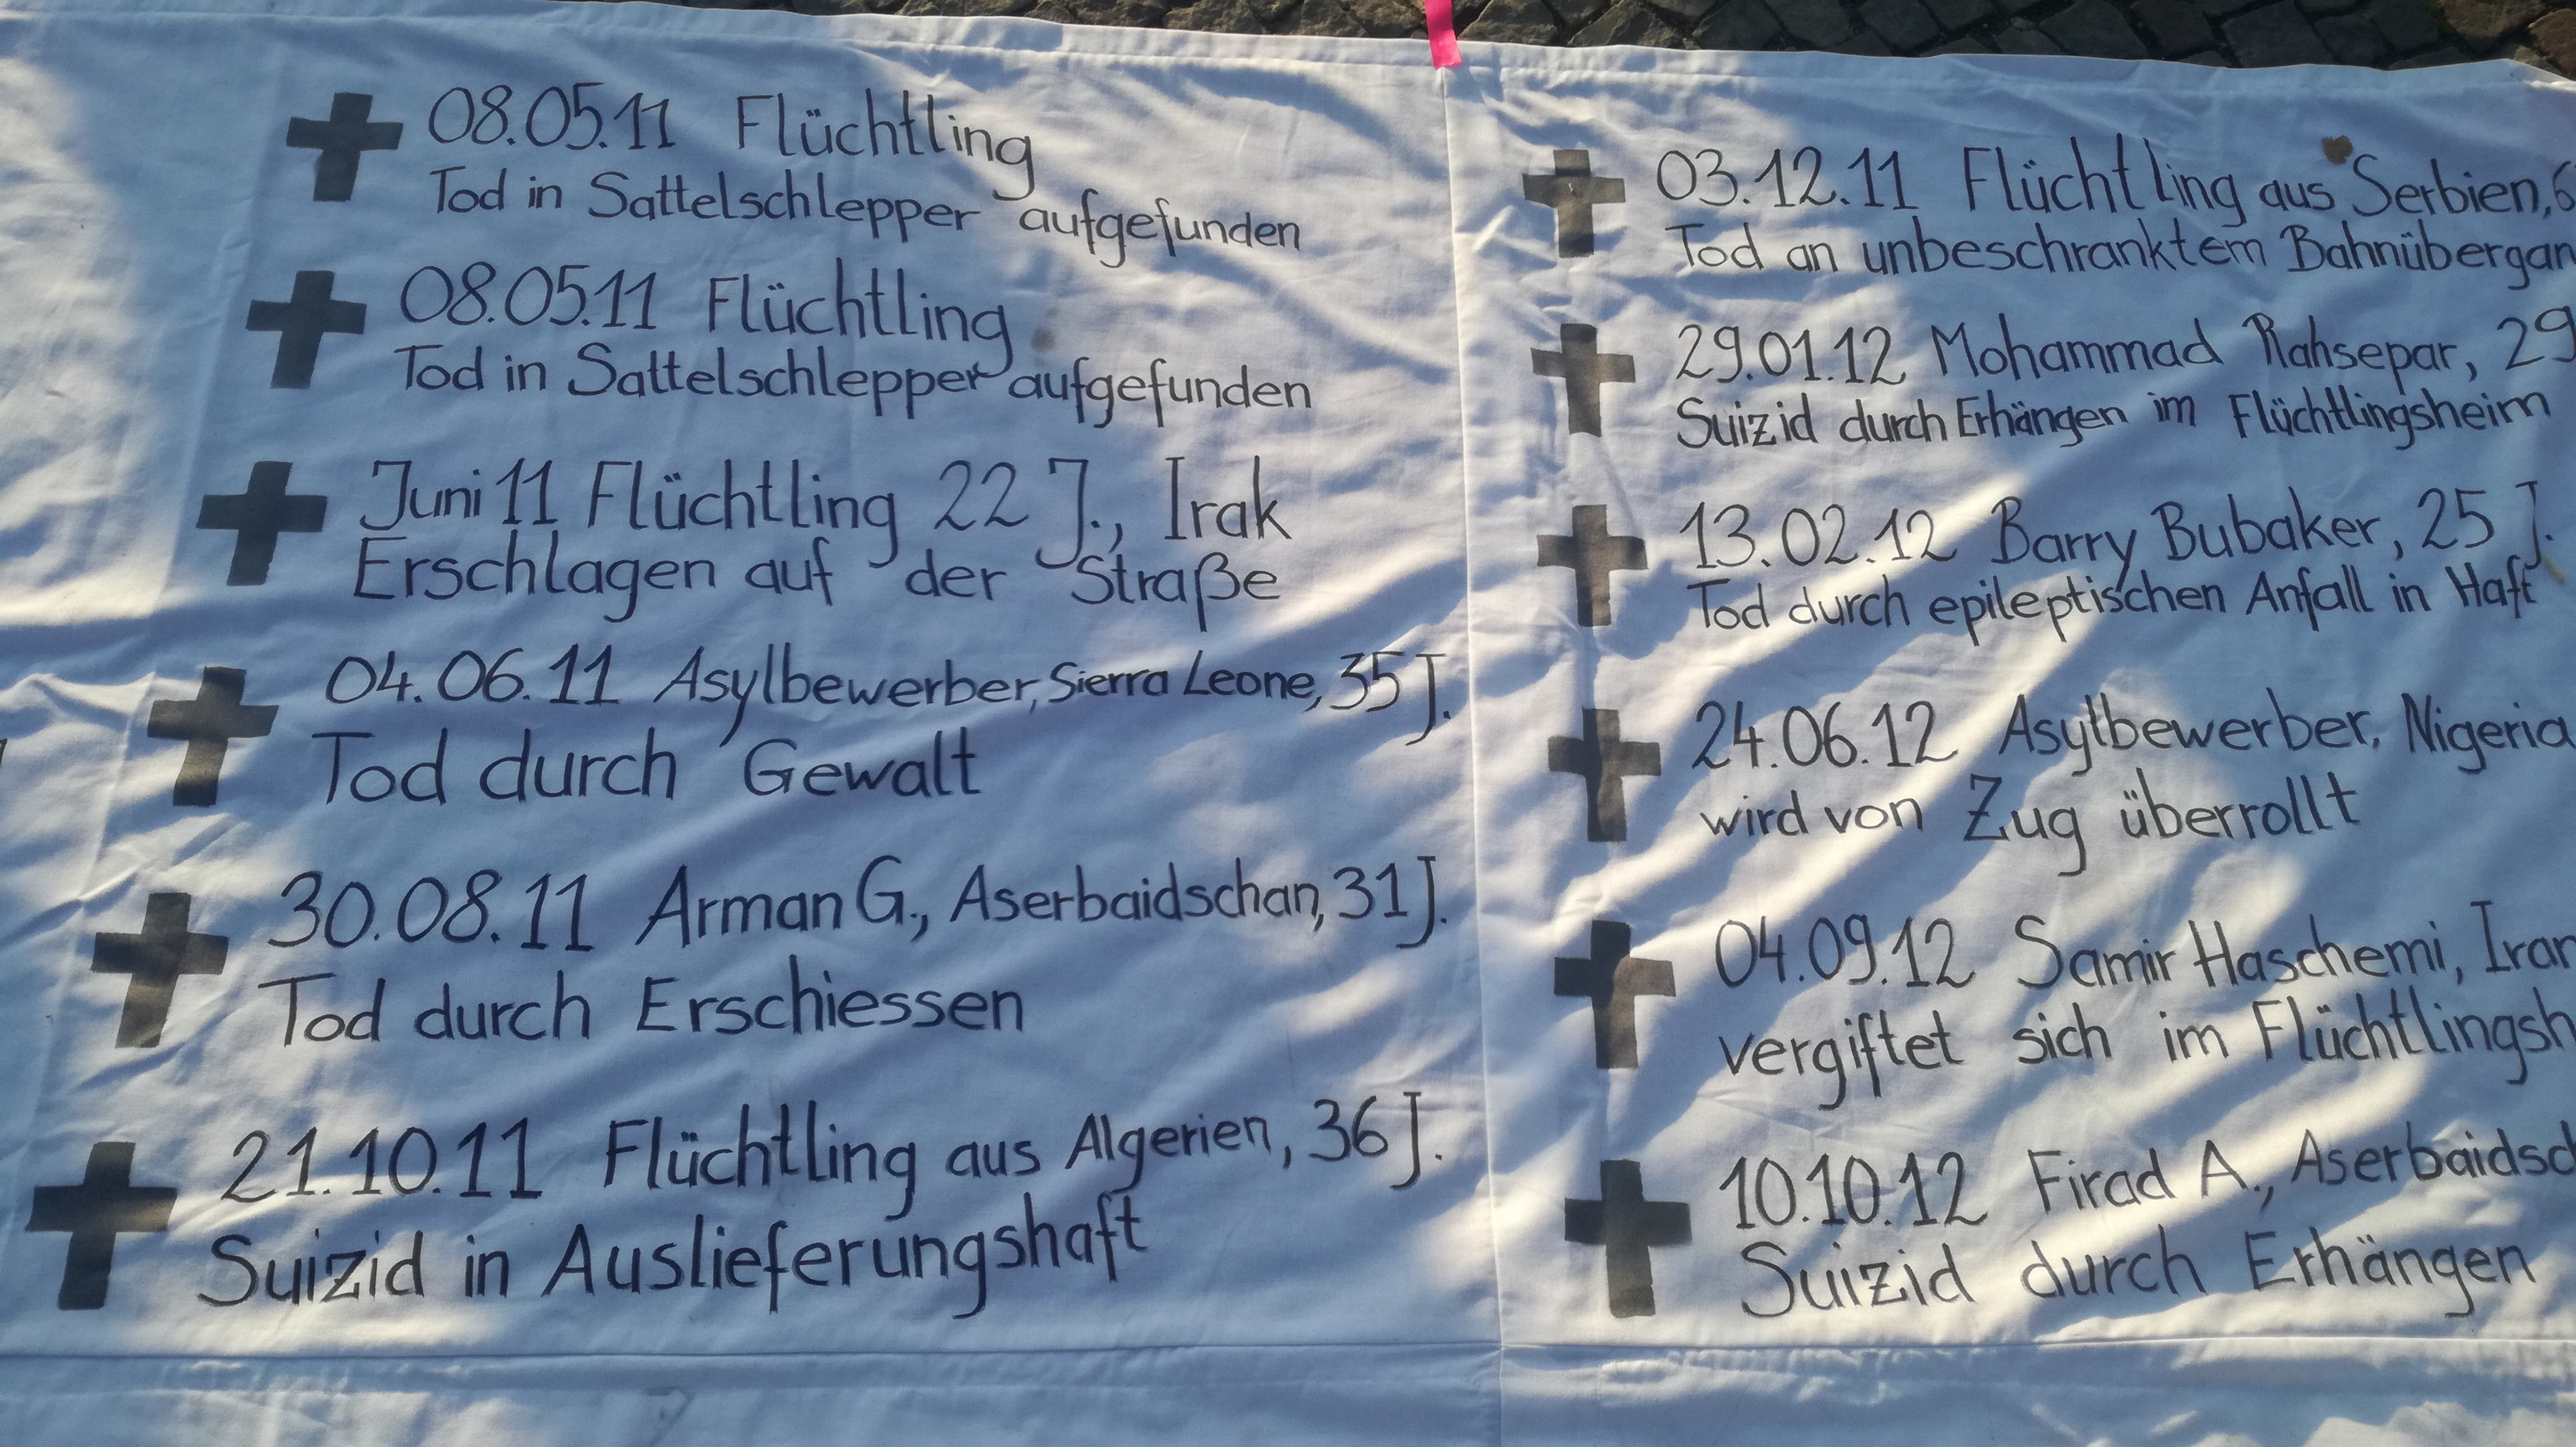 08.05.11 Flüchtling
Tod in Sattelschlepper aufgefunden
08.05.11 Flüchtling
Tod in Sattelschlepper aufgefunden
Juni 11 Flüchtling 22 J., Irak
Erschlagen auf der Straße
04.06.11 Asylbewerber, Sierra Leone, 35 J.
Tod durch Gewalt
30.08.11 Arman G., Aserbaidschan, 31 J.
Tod durch Erschiessen
21.10.11 Flüchtling aus Algerien, 36 J.
Suizid in Auslieferungshaft
03.12.11 Flüchtling aus Serbien, 6
Tod an unbeschranktem Bahnübergan
29.01.12 Mohammad Rahsepar, 29
Suizid durch Erhängen im Flüchtlingsheim
13.02.12 Barry Bubaker, 25 J.
Tod durch epileptischen Anfall in Haft
24.06.12 Asylbewerber, Nigeria
wird von Zug überrollt
04.09.12 Samir Haschemi, Iran
vergiftet sich im Flüchtlingsh
10.10.12 Firad A., Aserbaidsc
Suizid durch Erhängen